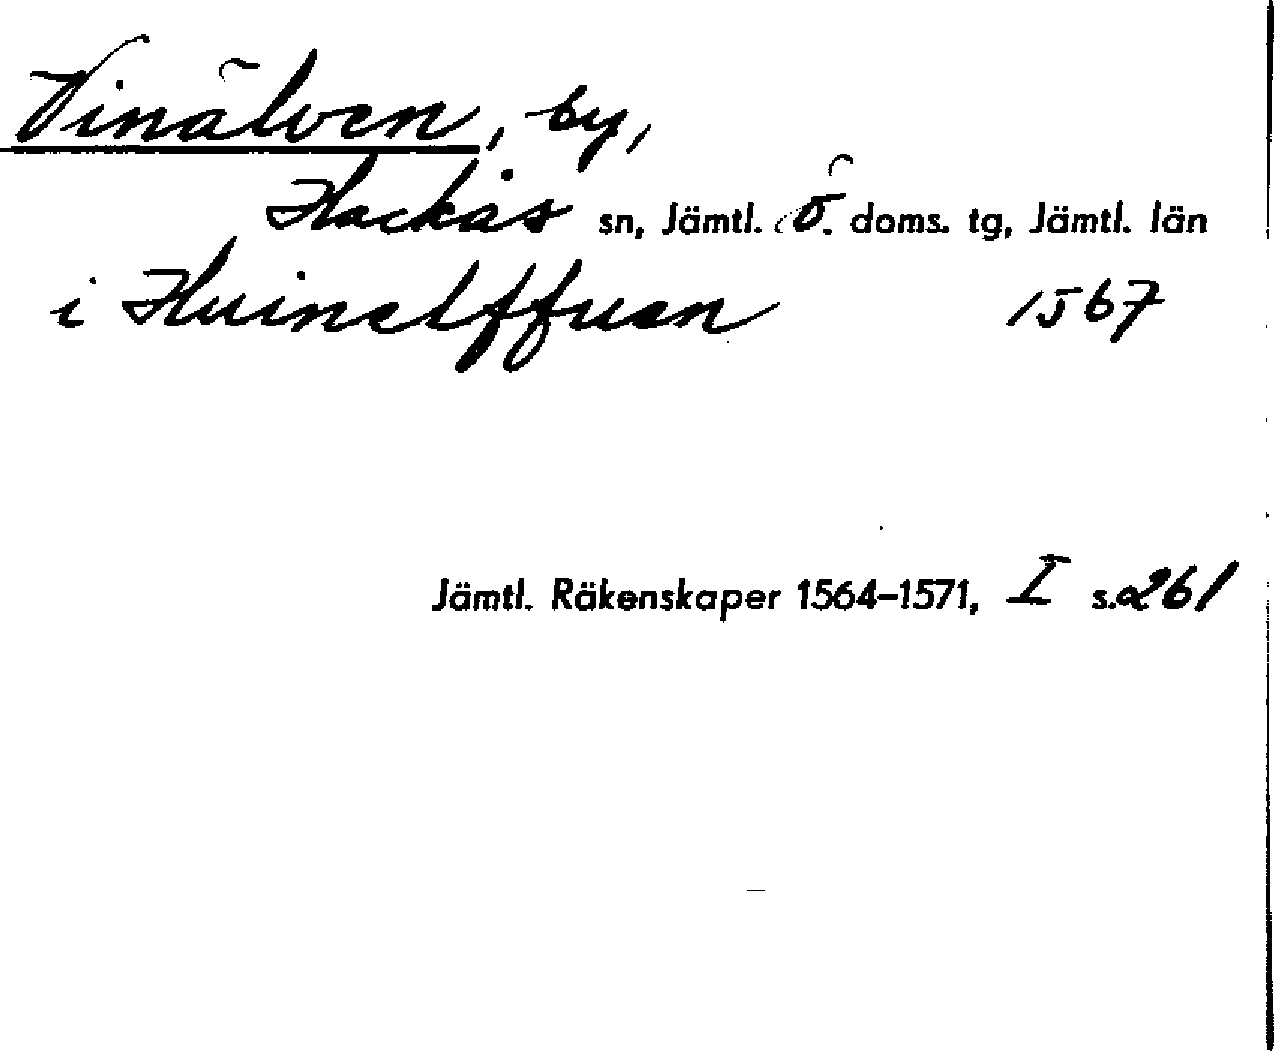 Vinälven, by,
Hackås sn, Jämtl. Ö. doms. tg, Jämtl. län
i Huinelffuen 1567
Jämtl. Räkenskaper 1564-1571, I s. 261